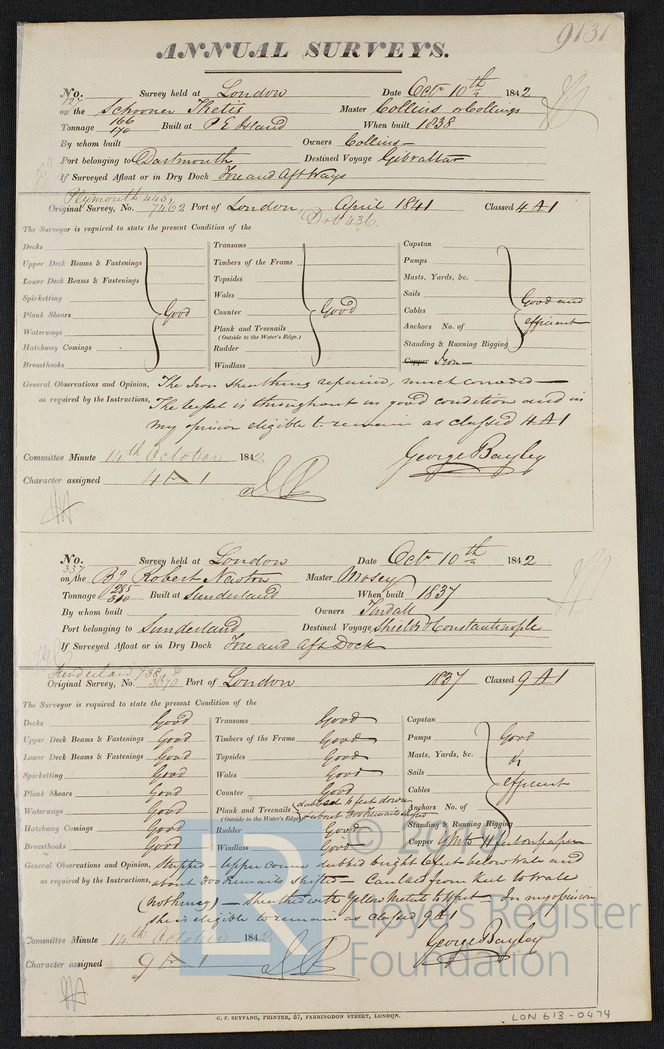 9131
ANNUAL SURVEYS.
No. 127 Survey held at London Date Octr 10th 1842
on the Schooner Thetis Master Collins or Collings
Tonnage 166 176 Built at P E Island When built 1838
By whom built Owners Collins
Port belonging to Dartmouth Destined Voyage Gibraltar
If Surveyed Afloat or in Dry Dock Fore and Aft Ways
Plymouth 445,
Original Survey, No. 7462 Port of London, April 1841 Classed 4 A 1
Do 436
The Surveyor is required to state the present Condition of the
Decks Transoms Capstan
Upper Deck Beams & Fastenings Timbers of the Frame Pumps
Lower Deck Beams & Fastenings Topsides Masts, Yards, &c.
Spirketting Wales Sails Good and
Plank Shears Good Counter Good Cables
Waterways Plank and Treenails Anchors No. of efficient
(Outside to the Water's Edge.)
Hatchway Comings Rudder Standing & Running Rigging
Breasthooks Windlass Copper Iron
General Observations and Opinion, The Iron Sheathing repaired, much corroded
as required by the Instructions, The Vessel is throughout in good condition and in
my opinion eligible to remain as classed 4A1
Committee Minute 14th October 1842 George Bayley
Character assigned 4 A 1
No. 337 Survey held at London Date Octr 10th 1842
on the Bg Robert Newton Master Mosey
Tonnage 285 310 Built at Sunderland When built 1837
By whom built Owners Tindall
Port belonging to Sunderland Destined Voyage Shields & Constantinople
If Surveyed Afloat or in Dry Dock Fore and Aft Dock
Sunderland 738,
Original Survey, No. 3670 Port of London 1837 Classed 9 A 1
The Surveyor is required to state the present Condition of the
Decks Good Transoms Good Capstan
Upper Deck Beams & Fastenings Good Timbers of the Frame Good Pumps Good
Lower Deck Beams & Fastenings Good Topsides Good Masts, Yards, &c. &
Spirketting Good Wales Good Sails efficient
Plank Shears Good Counter Good Cables
Waterways Good Plank and Treenails dubbed 6 feet down Anchors No. of
(Outside to the Water's Edge) about 300 treenails shifted
Hatchway Comings Good Rudder Good Standing & Running Rigging
Breasthooks Good Windlass Good Copper Y Mts on paper
General Observations and Opinion, Stripped - Upper courses dubbed bright 6 feet below Wale and
as required by the Instructions, about 300 treenails shifted - Caulked from Keel to Wale
(Nothing) - sheathed with Yellow Metal to feet - In my opinion
She is eligible to remain as classed 9A1
Committee Minute 14th October 1842 George Bayley
Character assigned 9 A 1
© 2019
Lloyd's Register
Foundation
LR
C. F. SEYFANG, PRINTER, 57, FARRINGDON STREET, LONDON.
LON 613-0474